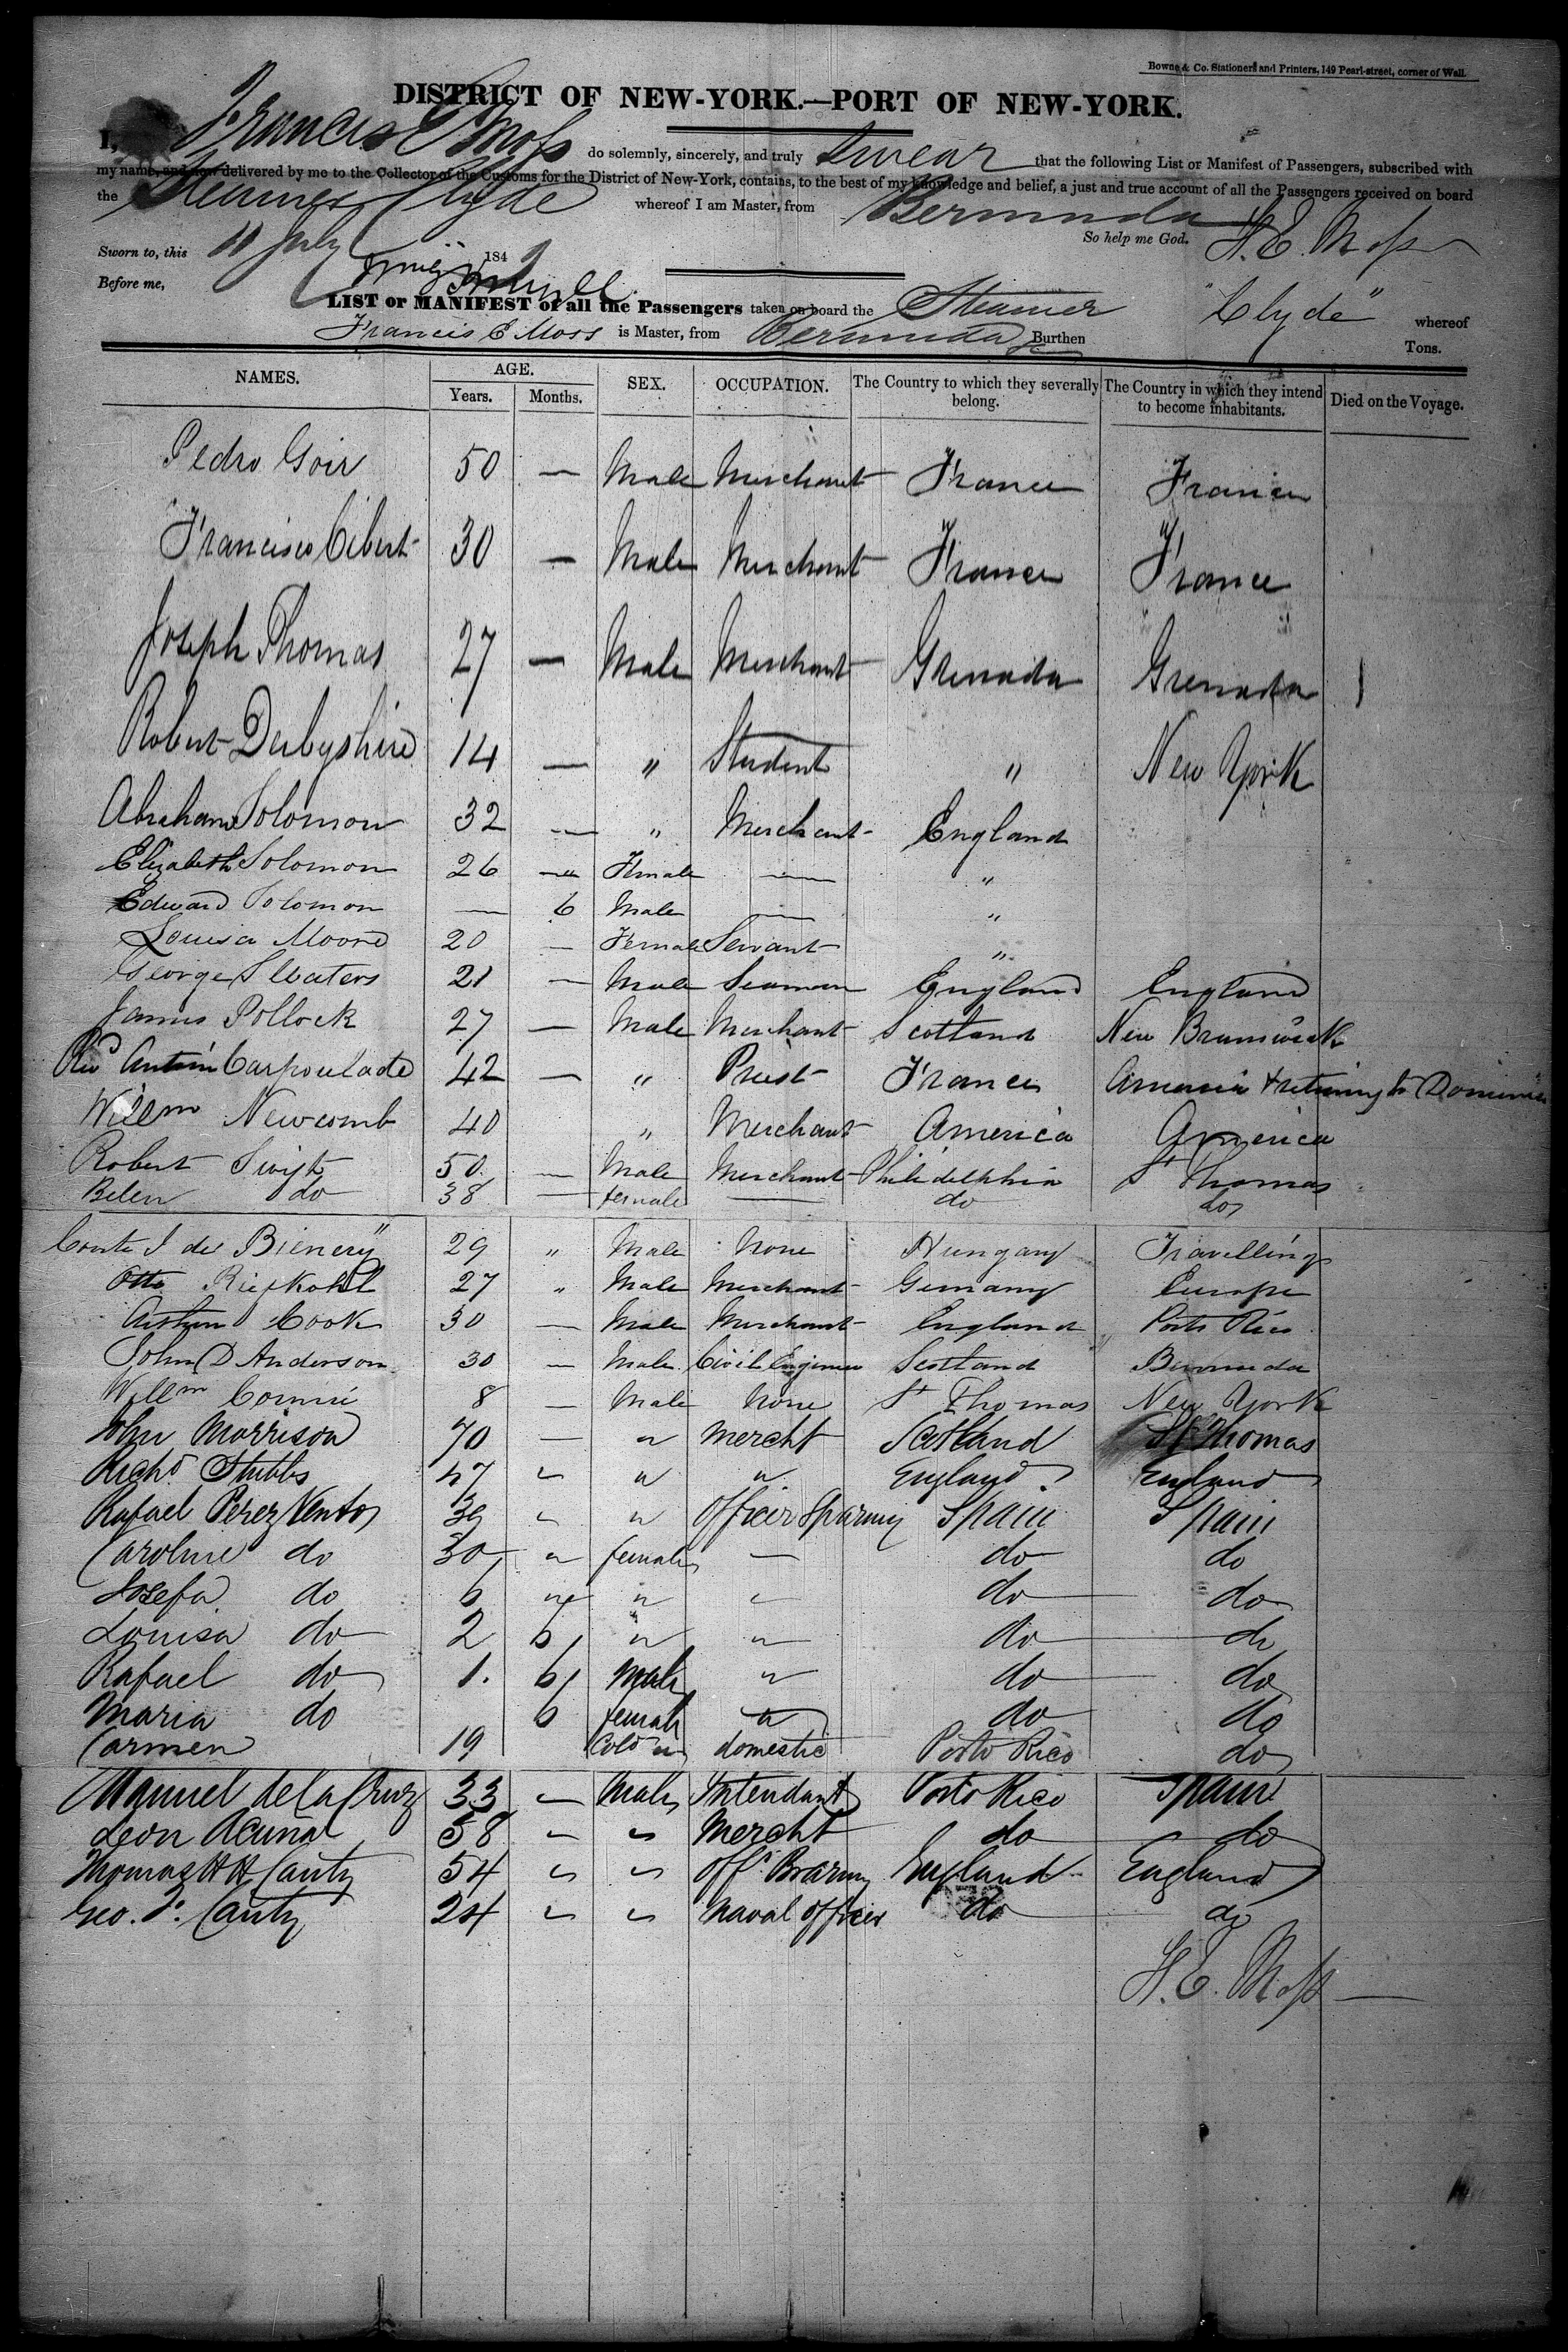 Bowne & Co. Stationers and Printers, 149 Pearl-street, corner of Wall.
DISTRICT OF NEW-YORK.—PORT OF NEW-YORK.
I, Francis E Moss do solemnly, sincerely, and truly Swear that the following List or Manifest of Passengers, subscribed with
my name, and now delivered by me to the Collector of the Customs for the District of New-York, contains, to the best of my knowledge and belief, a just and true account of all the Passengers received on board
the Steamer Clyde whereof I am Master, from Bermuda
So help me God. F. E. Moss
Sworn to, this 11 July 184
Before me,
LIST or MANIFEST of all the Passengers taken on board the Steamer "Clyde" whereof
Francis E Moss is Master, from Bermuda Burthen Tons.
NAMES. AGE. Years. Months. SEX. OCCUPATION. The Country to which they severally belong. The Country in which they intend to become inhabitants. Died on the Voyage.
Pedro Goir 50 — Male Merchant France France
Francisco Cibert 30 — Male Merchant France France
Joseph Thomas 27 — Male Merchant Grenada Grenada
Robert Derbyshire 14 — " Student " New York
Abraham Solomon 32 — " Merchant England
Elizabeth Solomon 26 — Female — "
Edward Solomon — 6 Male — "
Louisa Moore 20 — Female Servant "
George S Waters 21 — Male Seaman England England
James Pollock 27 — Male Merchant Scotland New Brunswick
Revd Carpoulade 42 — " Priest France America & returning to Dominica
Willm Newcomb 40 " Merchant America America
Robert Swift 50 — Male Merchant Philidelphia St Thomas
Belen do 38 — female — do do
Comte J de Bienery 29 " Male None Hungary Travelling
Otto Riefkohl 27 " Male Merchant Germany Europe
Arthur Cook 30 — Male Merchant England Porto Rico
John D Anderson 30 — Male Civil Engineer Scotland Bermuda
Willm 8 — Male None St Thomas New York
John Morrison 70 — " Mercht Scotland St Thomas
Richd Stubbs 47 " " " England England
Rafael Perez Vento 39 " " Officer Sp army Spain Spain
Caroline do 30 " female — do do
Josefa do 6 " " " do do
Louisa do 2 6 " " do do
Rafael do 1 6 male " do do
Maria do 6 female " do do
Carmen 19 Cold " domestic Porto Rico do
Manuel de la Cruz 33 — Male Intendant Porto Rico Spain
Leon Acuna 58 " " Mercht do do
Thomas H H Cauty 54 " " Offr Br army England England
Geo. F. Cauty 24 " " Naval Officer do do
F. E. Moss